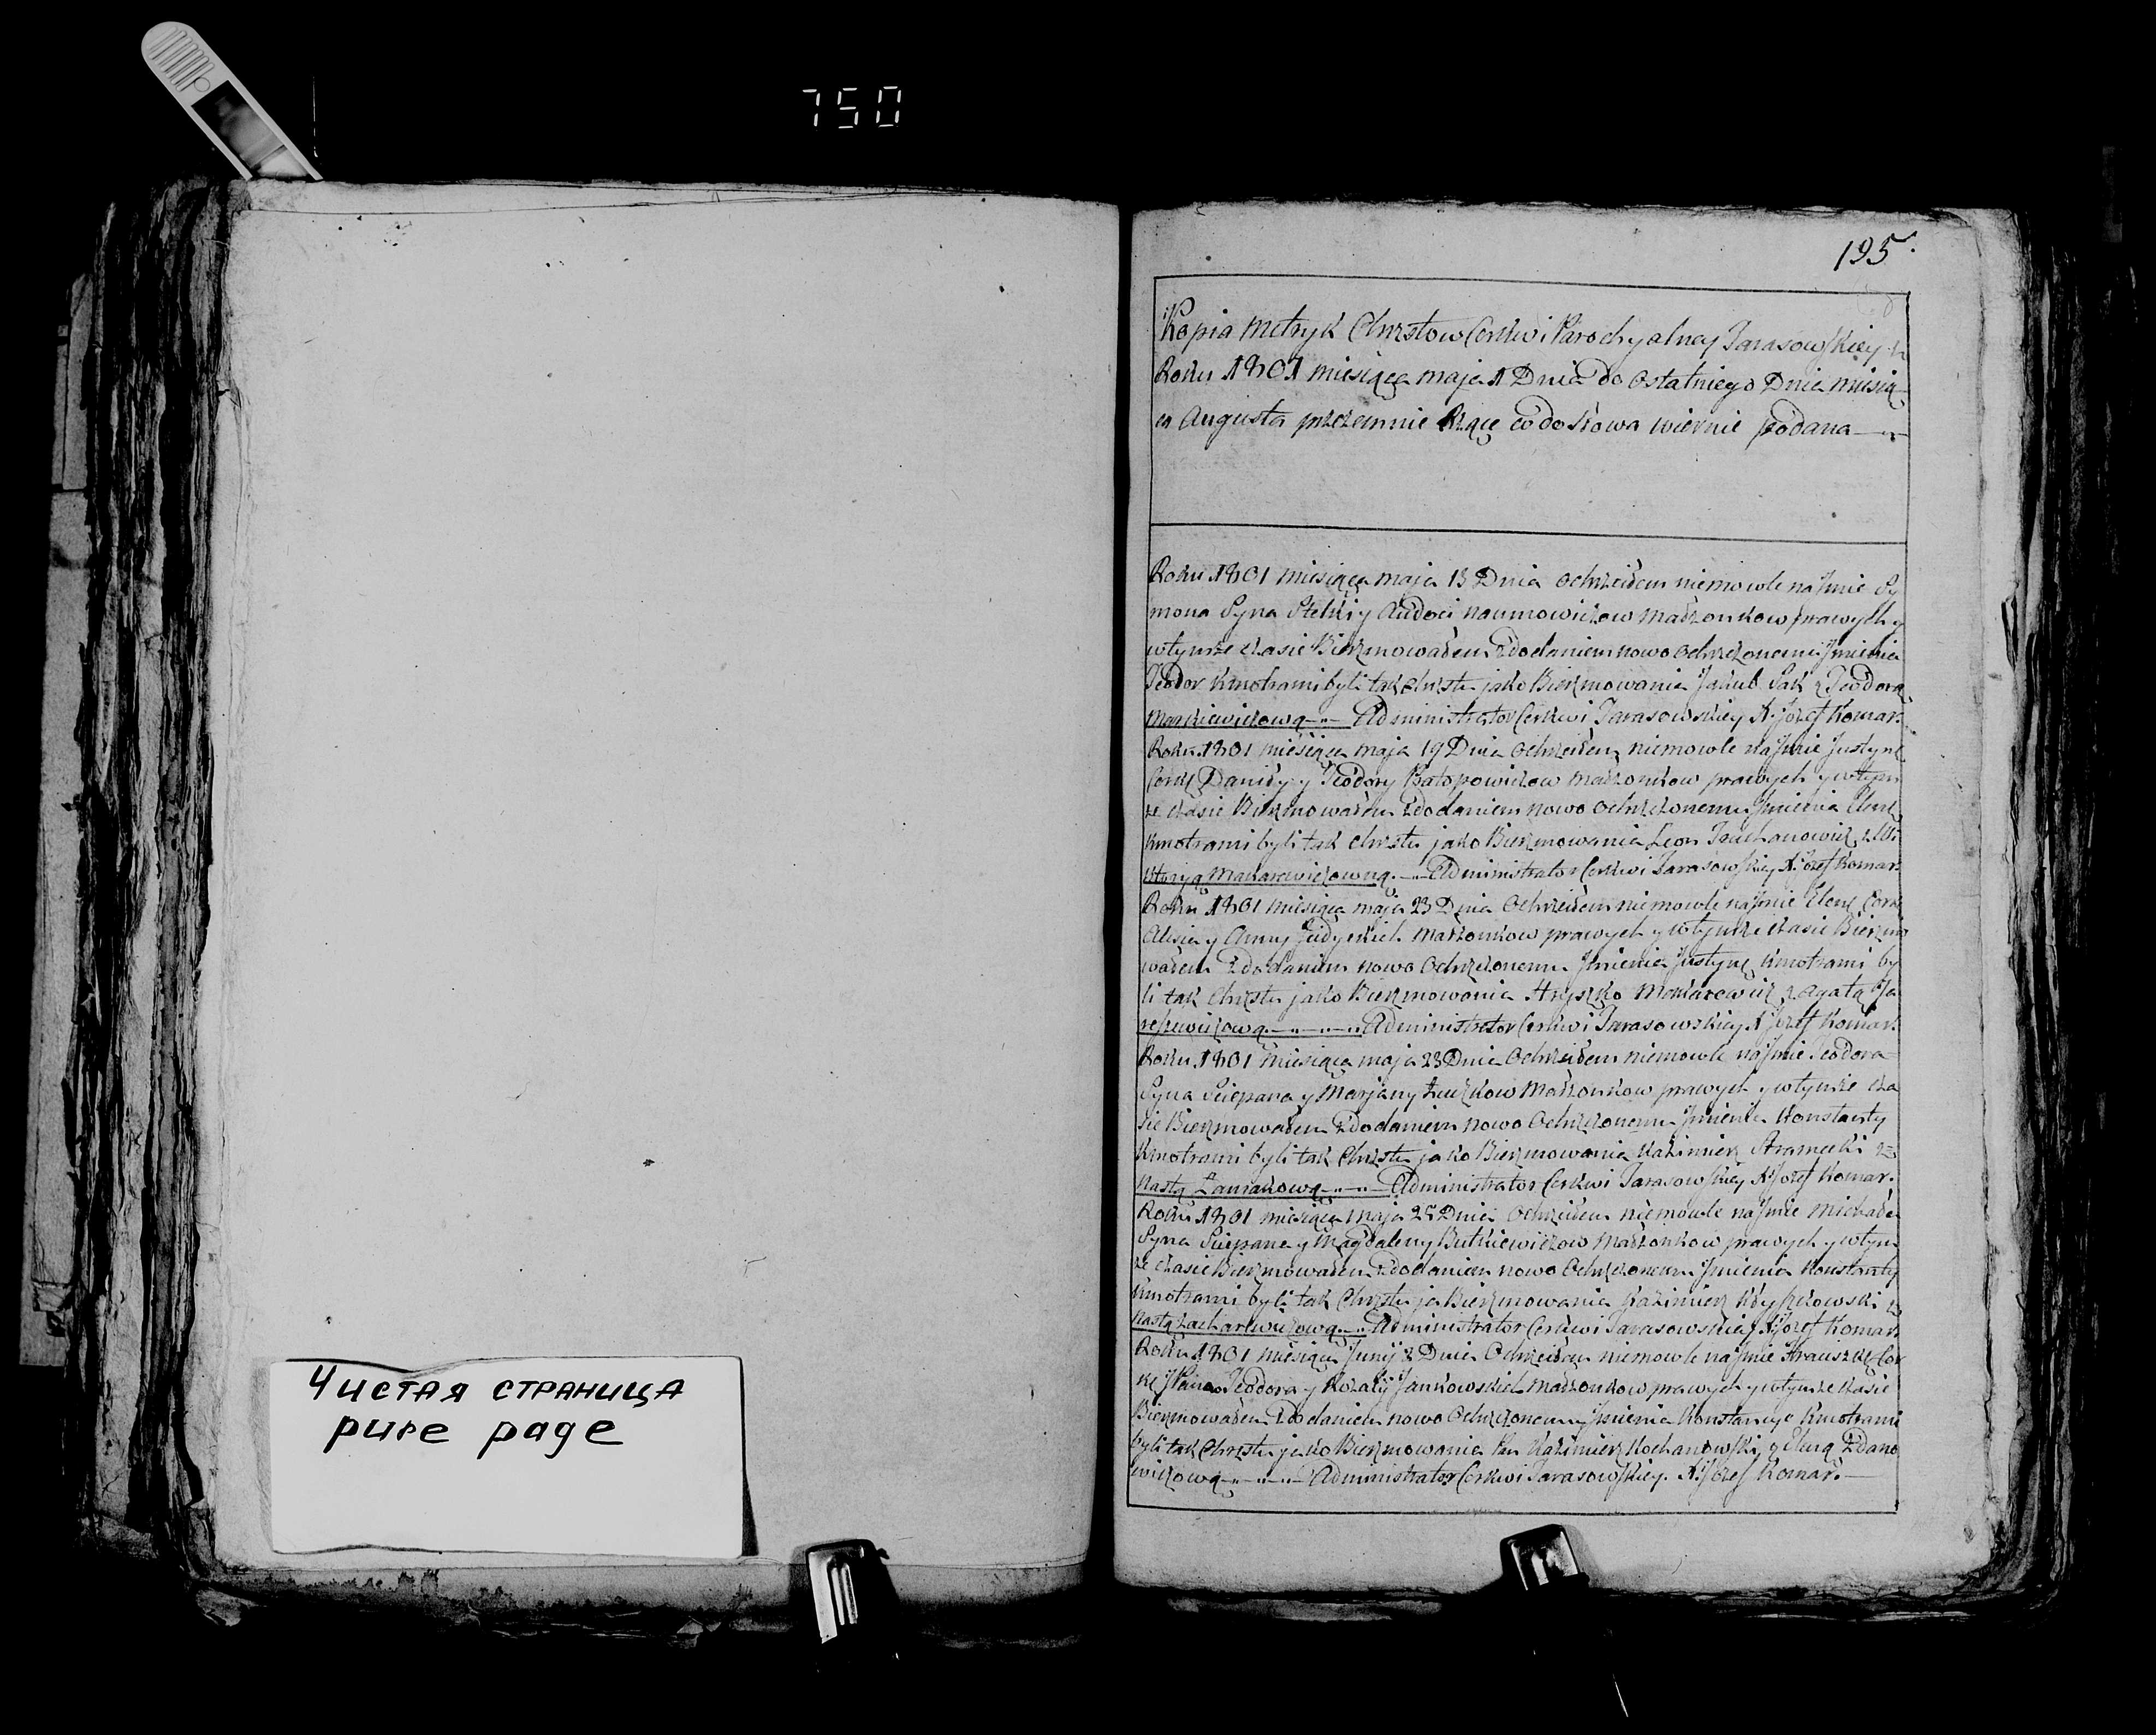 750
195.
Kopia Metryk Chrztow Cerkwi Parochyalney Tarasowskiey z
Roku 1801 miesiąca maja 1 Dnia do Ostatniego Dnia miesią
ca Augusta przezemnie co do słowa wiernie podana
Roku 1801 miesiąca maja 13 Dnia Ochrzciłem niemowle na Jmie Sy
mona Syna y Audoci Naumowiczow Małżonkow prawych y
wtymże czasie Bierzmowałem z dodaniem nowo Ochrzczonemu Jmienia
Teodor Kmotrami byli tak Chrztu jako Bierzmowania Jakub Sak z Teodorą
Markiewiczową Administrator Cerkwi Tarasowskiey X. Jozef Komar.
Roku 1801 miesiąca maja 19 Dnia Ochrzciłem niemowle na Jmie Justynę
Corkę Daniły y Teodory Małżonkow prawych y wtym
że czasie Bierzmowałem z dodaniem nowo Ochrzczonemu Jmienia Elenę
Kmotrami byli tak Chrztu jako Bierzmowania Leon z Wi
ktoryą Makarewiczowną. Administrator Cerkwi Tarasowskiey X. Jozef Komar.
Roku 1801 miesiąca maja 23 Dnia Ochrzciłem niemowle na Jmie Elenę Cork
y Anny Małżonkow prawych y wtymże czasie Bierzmo
wałem z dodaniem nowo Ochrzczonemu Jmienia Justynę Kmotrami by
li tak Chrztu jako Bierzmowania Hryszko Makarewicz z Agatą
Administrator Cerkwi Tarasowskiey X Jozef Komar.
Roku 1801 miesiąca maja 23 Dnia Ochrzciłem niemowle na Jmie Teodora
Syna Sciepana y Marjany Małżonkow prawych y wtymże cza
sie Bierzmowałem z dodaniem nowo Ochrzczonemu Jmienia Konstanty
Kmotrami byli tak Chrztu jako Bierzmowania Kazimierz z
Nastą Administrator Cerkwi Tarasowskiey X Jozef Komar.
Roku 1801 miesiąca maja 28 Dnia Ochrzciłem niemowle na Jmie Michała
Syna Sciepana y Magdaleny Butkiewiczow Małżonkow prawych y wtym
że czasie Bierzmowałem z dodaniem nowo Ochrzczonemu Jmienia Konstanty
Kmotrami byli tak Chrztu ja Bierzmowania Kazimierz z
Nastą Zacharewiczową Administrator Cerkwi Tarasowskiey X Jozef Komar
Roku 1801 miesiąca Junij 2 Dnia Ochrzciłem niemowle na Jmie Cor
kę JPana Teodora y Rozalij Jankowskich Małżonkow prawych y wtymże czasie
Bierzmowałem z dodaniem nowo Ochrzczonemu Jmienia Konstancyę Kmotrami
byli tak Chrztu jako Bierzmowania Pan Kazimierz Kochanowski y Eleną Zdano
wiczową Administrator Cerkwi Tarasowskiey. X. Jozef Komar.
Чистая страница
pure page